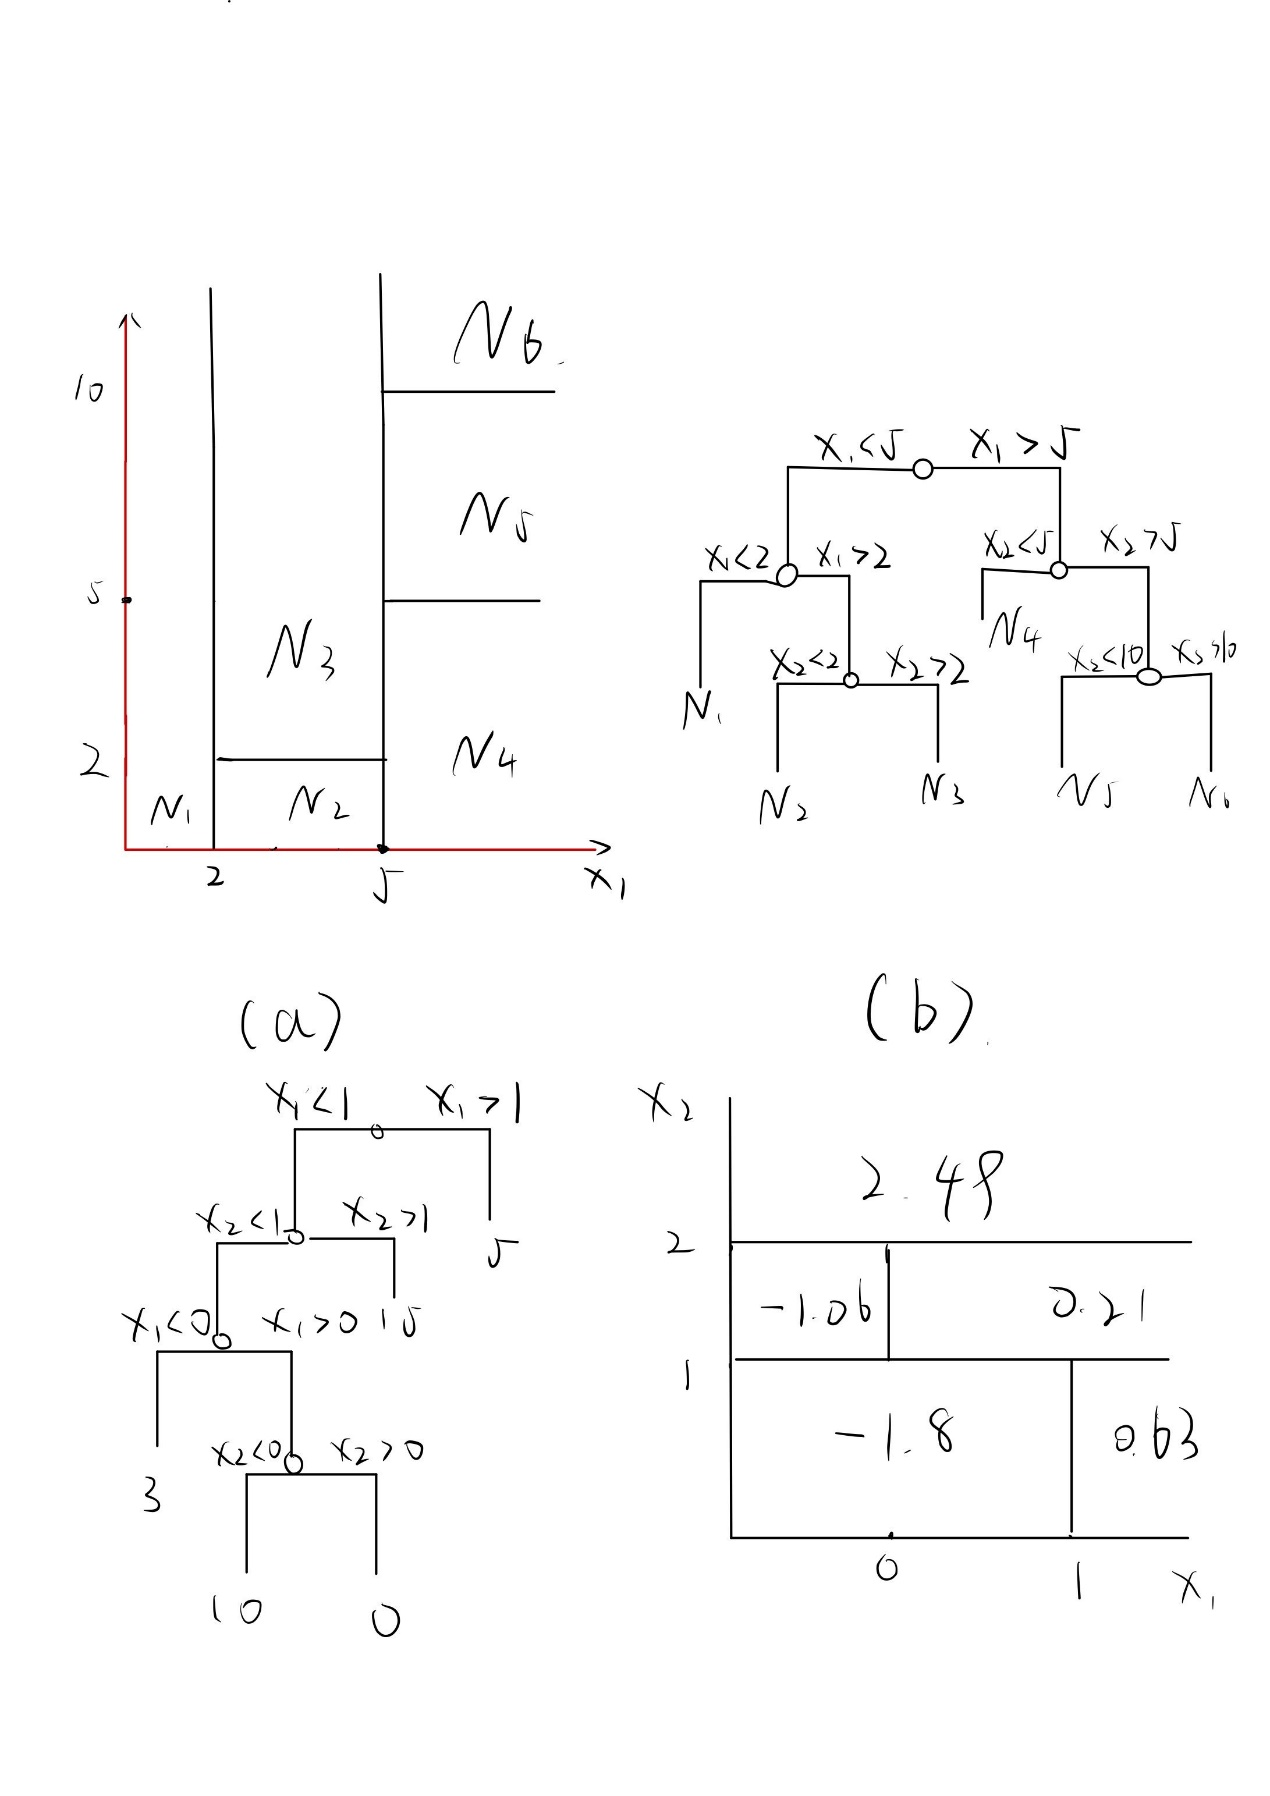 N6.
10
N5
5
N3
2
N4
N1
N2
2
5
x1
x1<5
x1>5
x1<2
x1>2
x2<5
x2>5
N1
x2<2
x2>2
N4
x2<10
x2>10
N2
N3
N5
N6
(a)
(b).
x1<1
x1>1
x2<1
x2>1
5
x1<0
x1>0
15
3
x2<0
x2>0
10
0
x2
2.49
2
-1.06
0.21
1
-1.8
0.63
0
1
x1